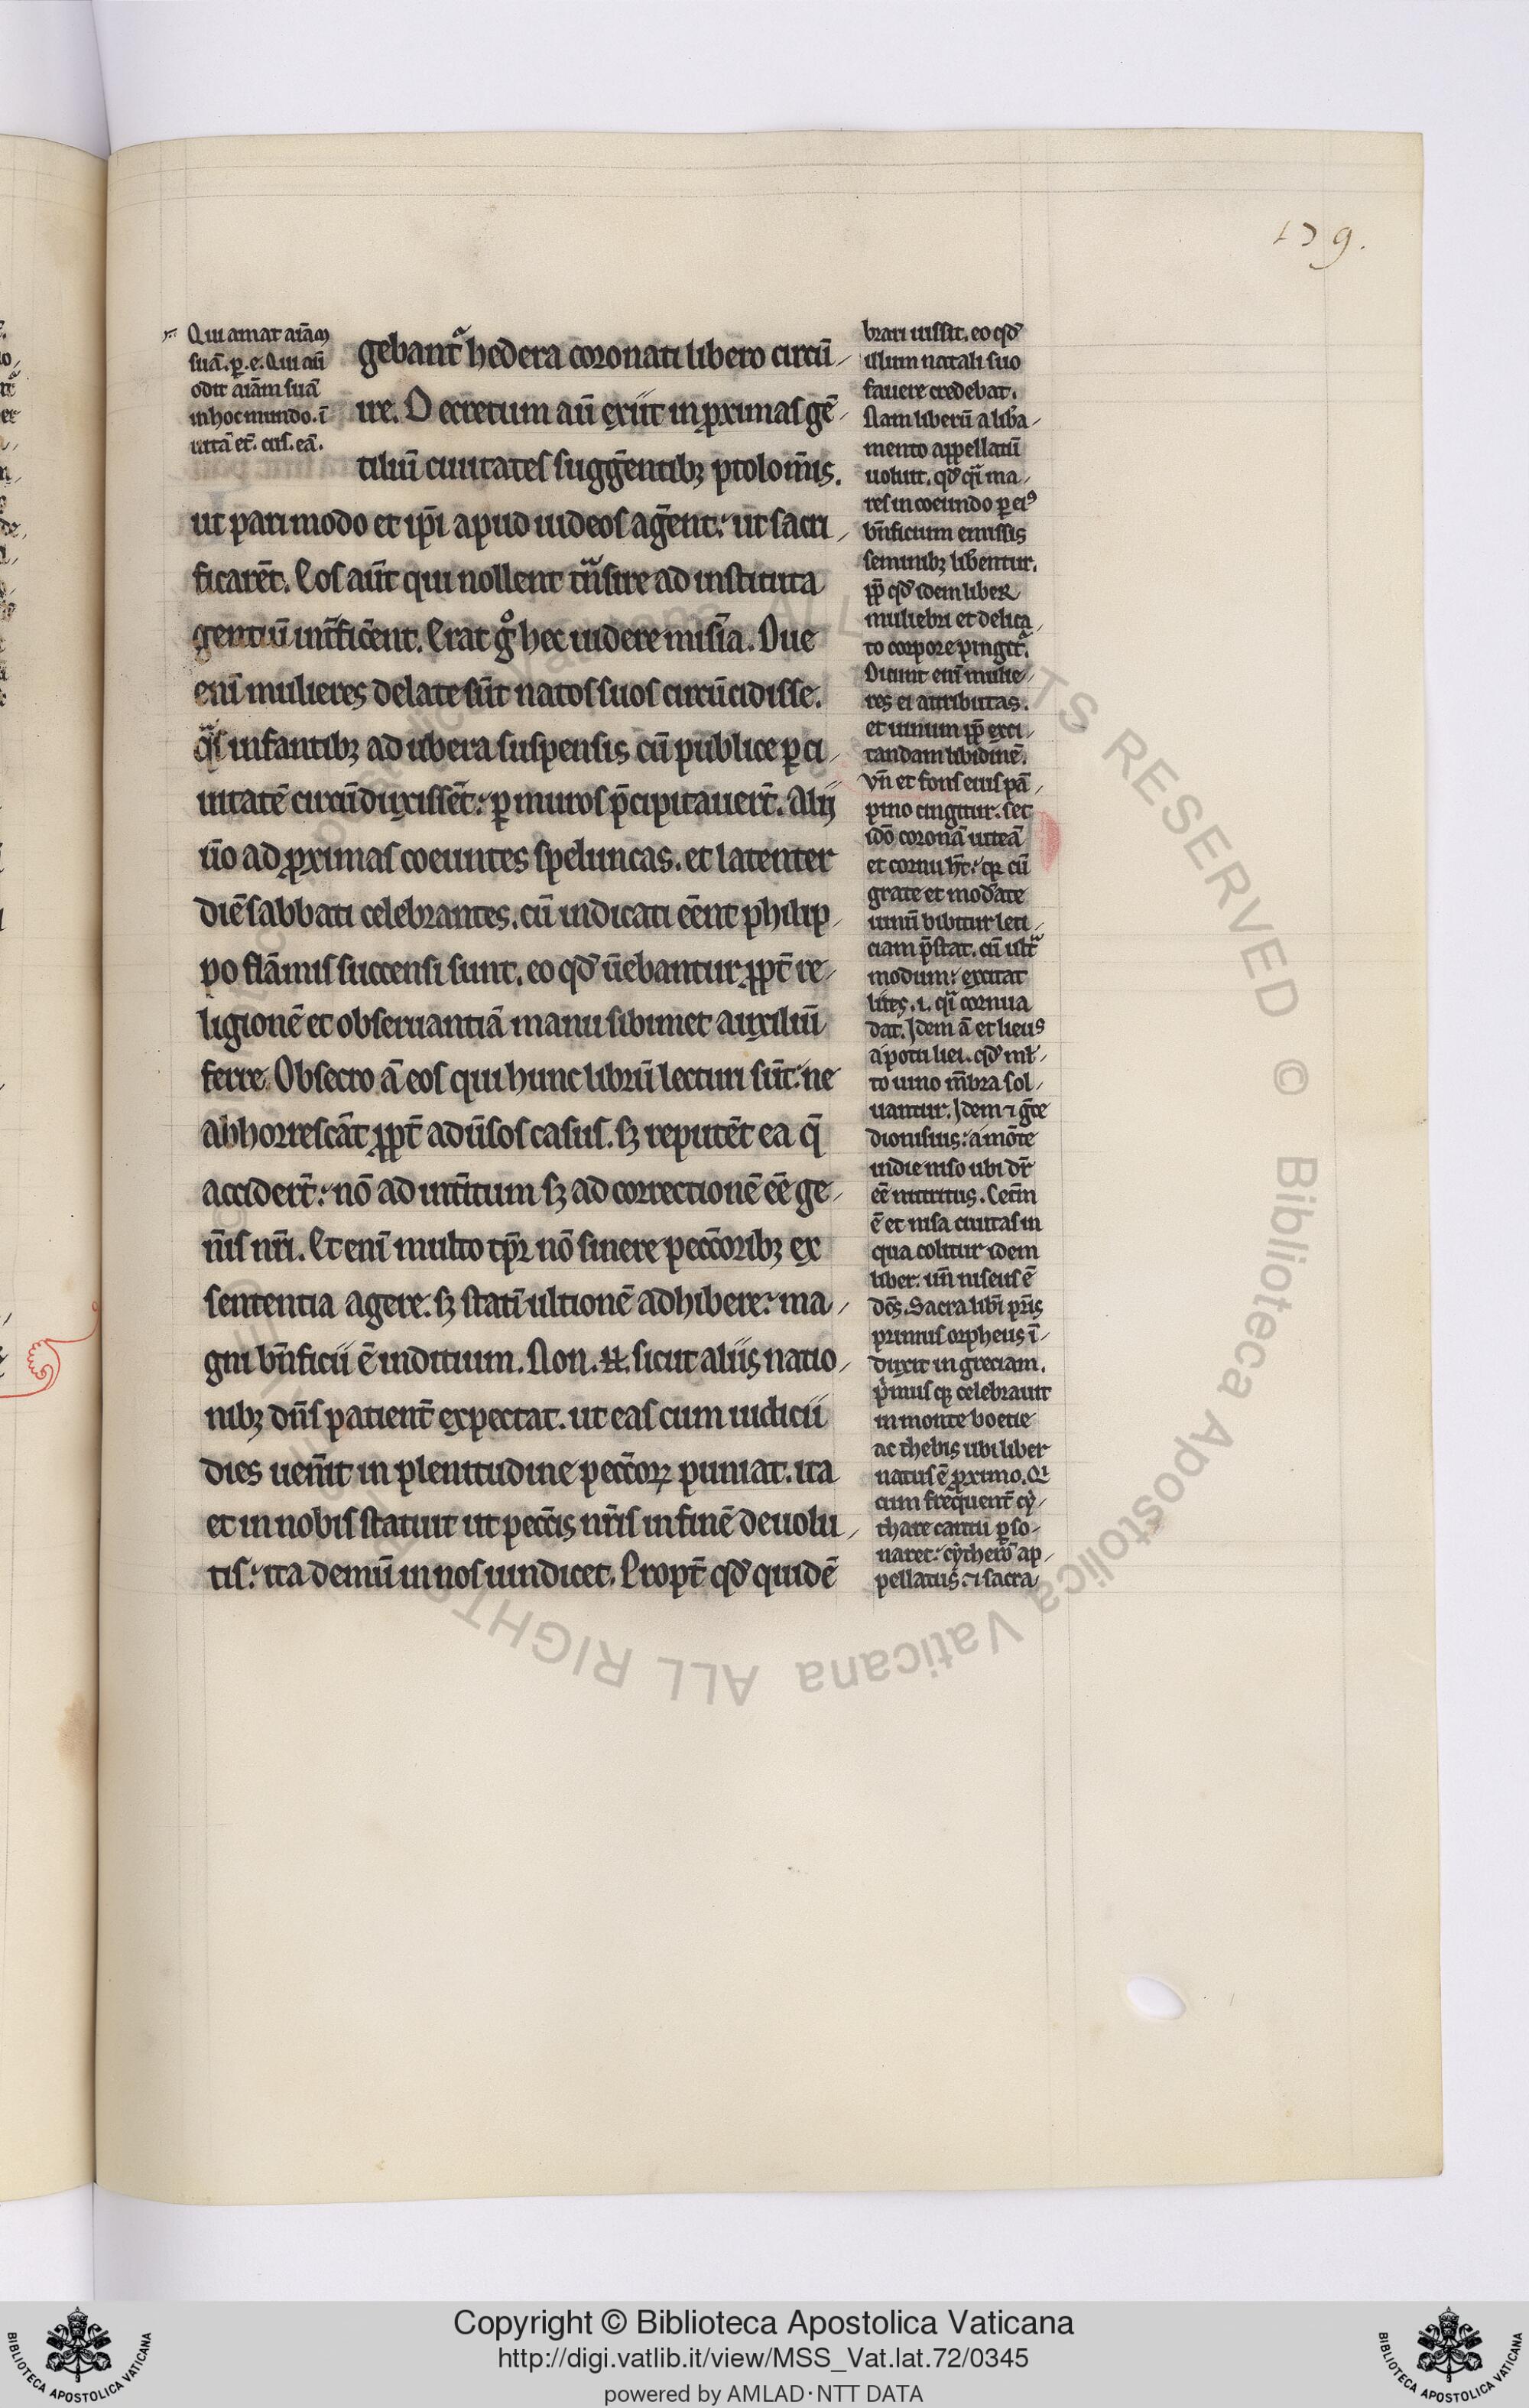 139.
Qui amat aīaꝫ
suā. ꝑ. e. Qui aū
odit aīam suā
in hoc mundo. ī
uitā et̄. cus. eā.
gebant᷑ hedera coronati libero circū
ire. Decretum aū exiit in ꝓximas gē
tiliū ciuitates sugg̃entibꝫ ptolom̄is.
ut pari modo et ip̄i apud iudeos ag̃ent. ut sacri
ficarēt. Eos aūt qui nollent tͣnsire ad instituta
gentiū int̃fic̄ent. Erat gͦ hec uidere mis̃ia. Due
enī mulieres delate sūt natos suos circūcidisse.
qͣs infantibꝫ ad ubera suspensis cū publice ꝑ ci
uitatē circūduxissēt. ꝑ muros p̄cipitauer̄t. Alij
ūo ad ꝓximas coeuntes speluncas. et latenter
diē sabbati celebrantes. cū indicati eēnt philip
po flāmis succensi sunt. eo qd̕ ūebantur ꝓpt̄ re
ligionē et obseruantiā manu sibimet auxiliū
ferre. Obsecro ā eos qui hunc librū lecturi sūt. ne
abhorrescāt ꝓpt̄ adūsos casus. sꝫ reputēt ea q̄
accidert̄. nō ad int̃itum sꝫ ad correctionē eē ge
n̄is nr̄i. Et enī multo tp̄r nō sinere pecc̄oribꝫ ex
sententia agere. sꝫ statī ultionē adhibere. ma
gni bn̄ficii ē inditium. Non .n. sicut aliis natio
nibꝫ dn̄s patient̄ expectat. ut eas cum iudicii
dies uen̄it in plenitudine pecc̄oꝝ puniat. ita
et in nobis statuit ut pecc̄is nr̄is in finē deuolu
tis. ita demū in nos uindicet. Propt̄ qd̕ quidē
brari iussit. eo qd̕
illum natali suo
fauere credebat.
Nam liberū a liba
mento appellatū
uolunt. qd̕ qͣi ma
res in coeundo ꝑ eiꝰ
bn̄ficium emissis
seminibꝫ lib̄entur.
ꝓp̄ qd̕ idem liber
muliebri et delica
to corpore pingit᷑.
Dicunt enī mulie
res ei attributas.
et uinum ꝓp̄ exci
tandam libidinē.
vn̄ et frons eius pā
pino cingitur. set
idō coronā uiteā
et cornu ht̄. qꝫ cū
grate et mod̕ate
uinū bibitur leti
ciam p̄stat. cū ultͣ
modum. excitat
lites. .i. qͣi cornua
dat. Idem ā et lieus
apo tu liei. qd̕ ml̕
to uino m̄bra sol
uantur. Idem ⁊ g̃ce
dionisius. a mōte
indie niso ubi dr̄
eē nutritus. Cet̃m
ē et nisa ciuitas in
qua colitur idem
liber. un̄ niseus ē
dc̄s. Sacra libi pr̄is
primus orpheus ī
duxit in greciam.
p̄musqꝫ celebrauit
in monte boetie
ac thebis ubi liber
natus ē ꝓximo. Q̄
cum frequent̄ cy
thare cantu ꝑso
naret. cytherō ap
pellatus. ⁊ sacra
Copyright © Biblioteca Apostolica Vaticana
http://digi.vatlib.it/view/MSS_Vat.lat.72/0345
powered by AMLAD·NTT DATA
BIBLIOTECA APOSTOLICA VATICANA
BIBLIOTECA APOSTOLICA VATICANA
© Biblioteca Apostolica Vaticana ALL RIGHTS RESERVED